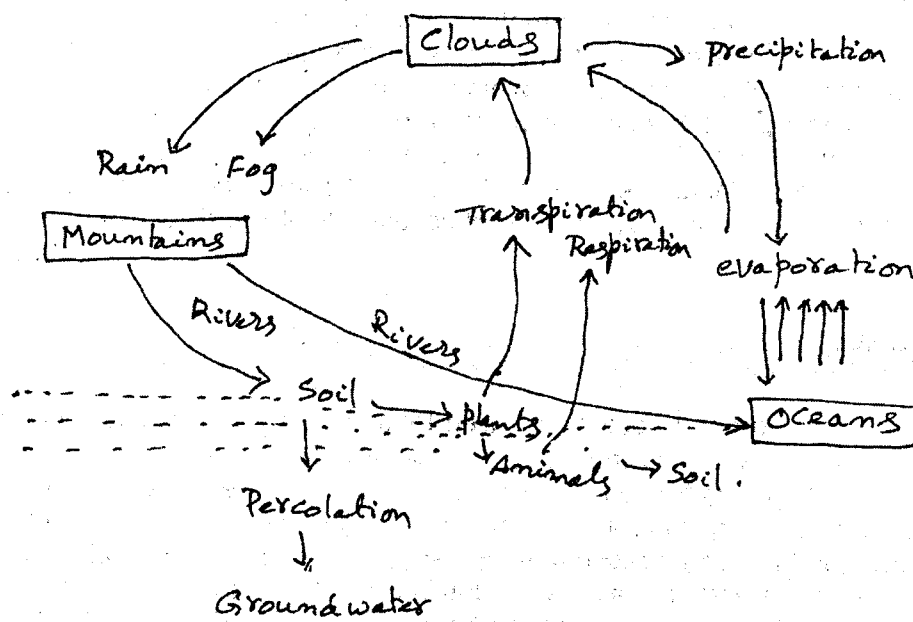 Clouds
precipitation
Rain
Fog
Transpiration
Raspiration
Mountains
evaporation
Rivers
Rivers
Soil
plants
Oceans
Animals
Soil.
Percolation
Groundwater